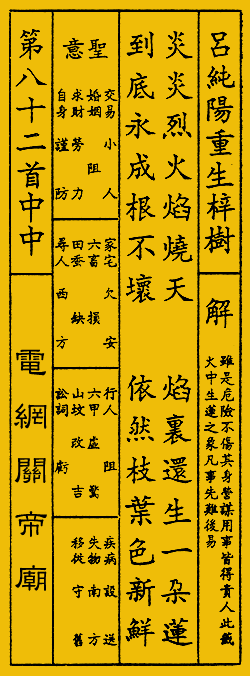 呂純陽重生梓樹
解
雖是危險不傷其身營謀用事皆得貴人此籤
火中生蓮之象凡事先難後易
炎炎烈火焰燒天 焰裏還生一朵蓮
到底永成根不壞 依然枝葉色新鮮
聖意
交易 小人
婚姻 阻
求財 勞力
自身 謹防
家宅 欠安
六畜 損
田蚕 缺
尋人 西方
行人 阻
六甲 虛驚
山坟 改吉
訟詞 虧
疾病 設送
失物 南方
移徙 守舊
第八十二首中中
電網關帝廟